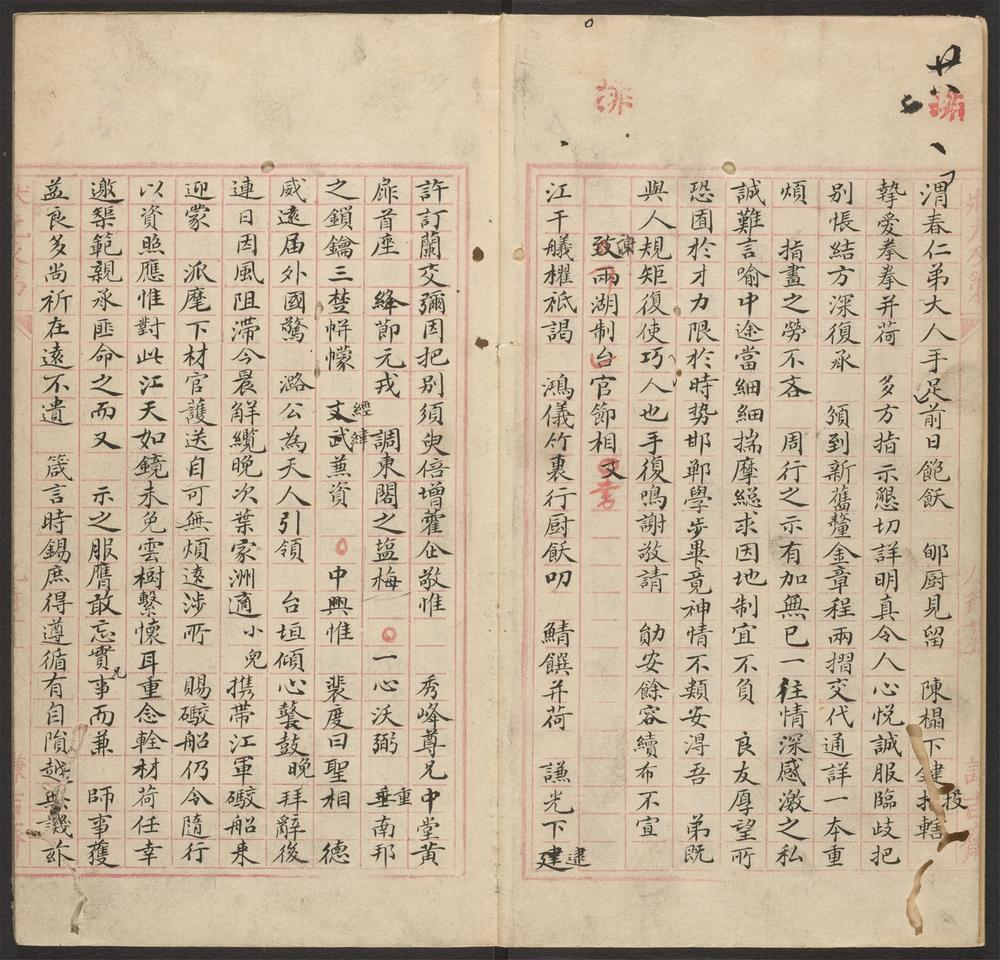 渭春仁弟大人手足前日飽飫　郇厨見留　陳榻下鍵投轄
摯愛拳拳并荷　多方指示懇切詳明真令人心悅誠服臨歧把
別悵結方深復承　頒到新舊釐金章程兩摺交代通詳一本重
煩　指畫之勞不吝　周行之示有加無已一往情深感激之私
誠難言喻中途當細細揣摩總求因地制宜不負　良友厚望所
恐囿於才力限於時勢邯鄲學步畢竟神情不類安得吾　弟既
與人規矩復使巧人也手復鳴謝敬請　勛安餘容續布不宣
致兩湖制台官節相文書
江干艤櫂祗謁　鴻儀竹裏行厨飫叨　鯖饌并荷　謙光下逮
許訂蘭交彌因把別須臾倍增藿企敬惟　秀峰尊兄中堂黃
扉首座　絳節元戎　調東閣之塩梅　一心沃弼　重南邦
之鎖鑰三楚帡幪　經文緯武兼資　中興惟　裴度曰聖相　德
威遠届外國驚　潞公為天人引領　台垣傾心鼛鼓晚拜辭後
連日因風阻滯今晨解纜晚次葉家洲適小兒携帶江軍礮船來
迎蒙　派麾下材官護送自可無煩遠涉所　賜礮船仍令隨行
以資照應惟對此江天如鏡未免雲樹繫懷耳重念輇材荷任幸
邀榘範親承匪命之而又　示之服膺敢忘實兄事而兼　師事獲
益良多尚祈在遠不遺　箴言時錫庶得遵循有自隕越無譏